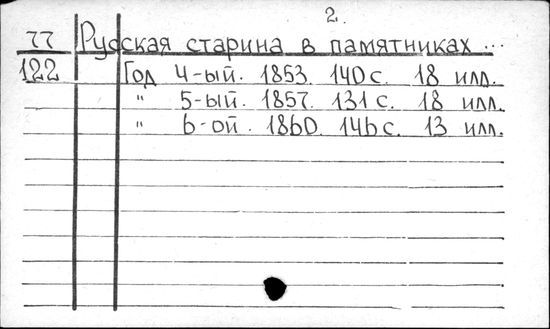 2.
77 Русская старина в памятниках ...
122 Год 4-ый. 1853. 140 с. 18 илл.
" 5-ый. 1857. 131 с. 18 илл.
" 6-ой. 1860. 146 с. 13 илл.